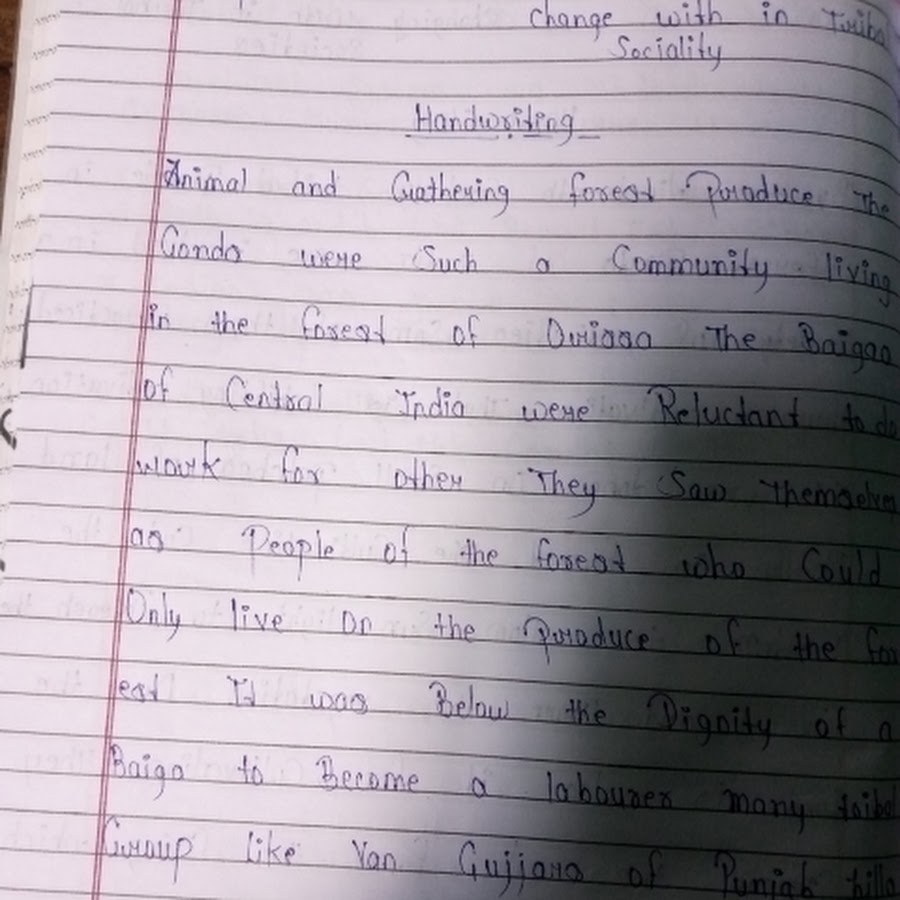 change with in Tribal
Sociality
Handwriting
Animal and Gathering forest Produce The
Gonds were Such a Community living
in the forest of Orissa The Baigas
of Central India were Reluctant to do
work for other They Saw Themselves
as People of the forest who Could
Only live on the Produce of the for
est It was Below the Dignity of a
Baiga to Become a labourer many
Group like Van Gujjars of Punjab hills